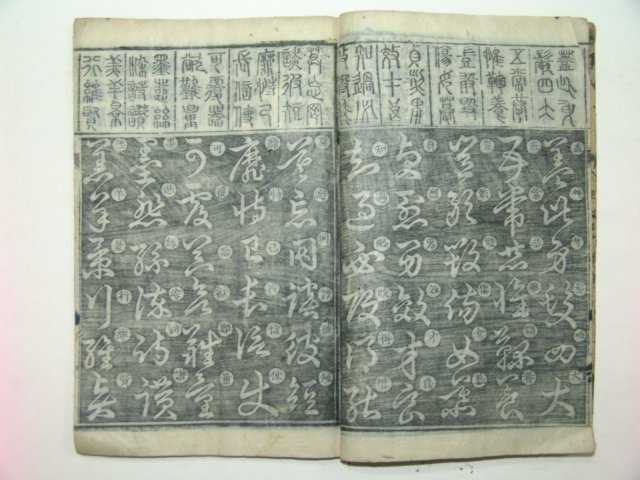 蓋此身
髮四大
五常恭
惟鞠養
豈敢毀
傷女慕
貞烈男
效才良
知過必
改得能
蓋此身髮四大
五常恭惟鞠養
豈敢毀傷女慕
貞烈男效才良
知過必改得能
莫忘罔
談彼短
靡恃己
長信使
可覆器
欲難量
墨悲絲
染詩讚
羔羊景
行維賢
莫忘罔談彼短
靡恃己長信使
可覆器欲難量
墨悲絲染詩讚
羔羊景行維賢